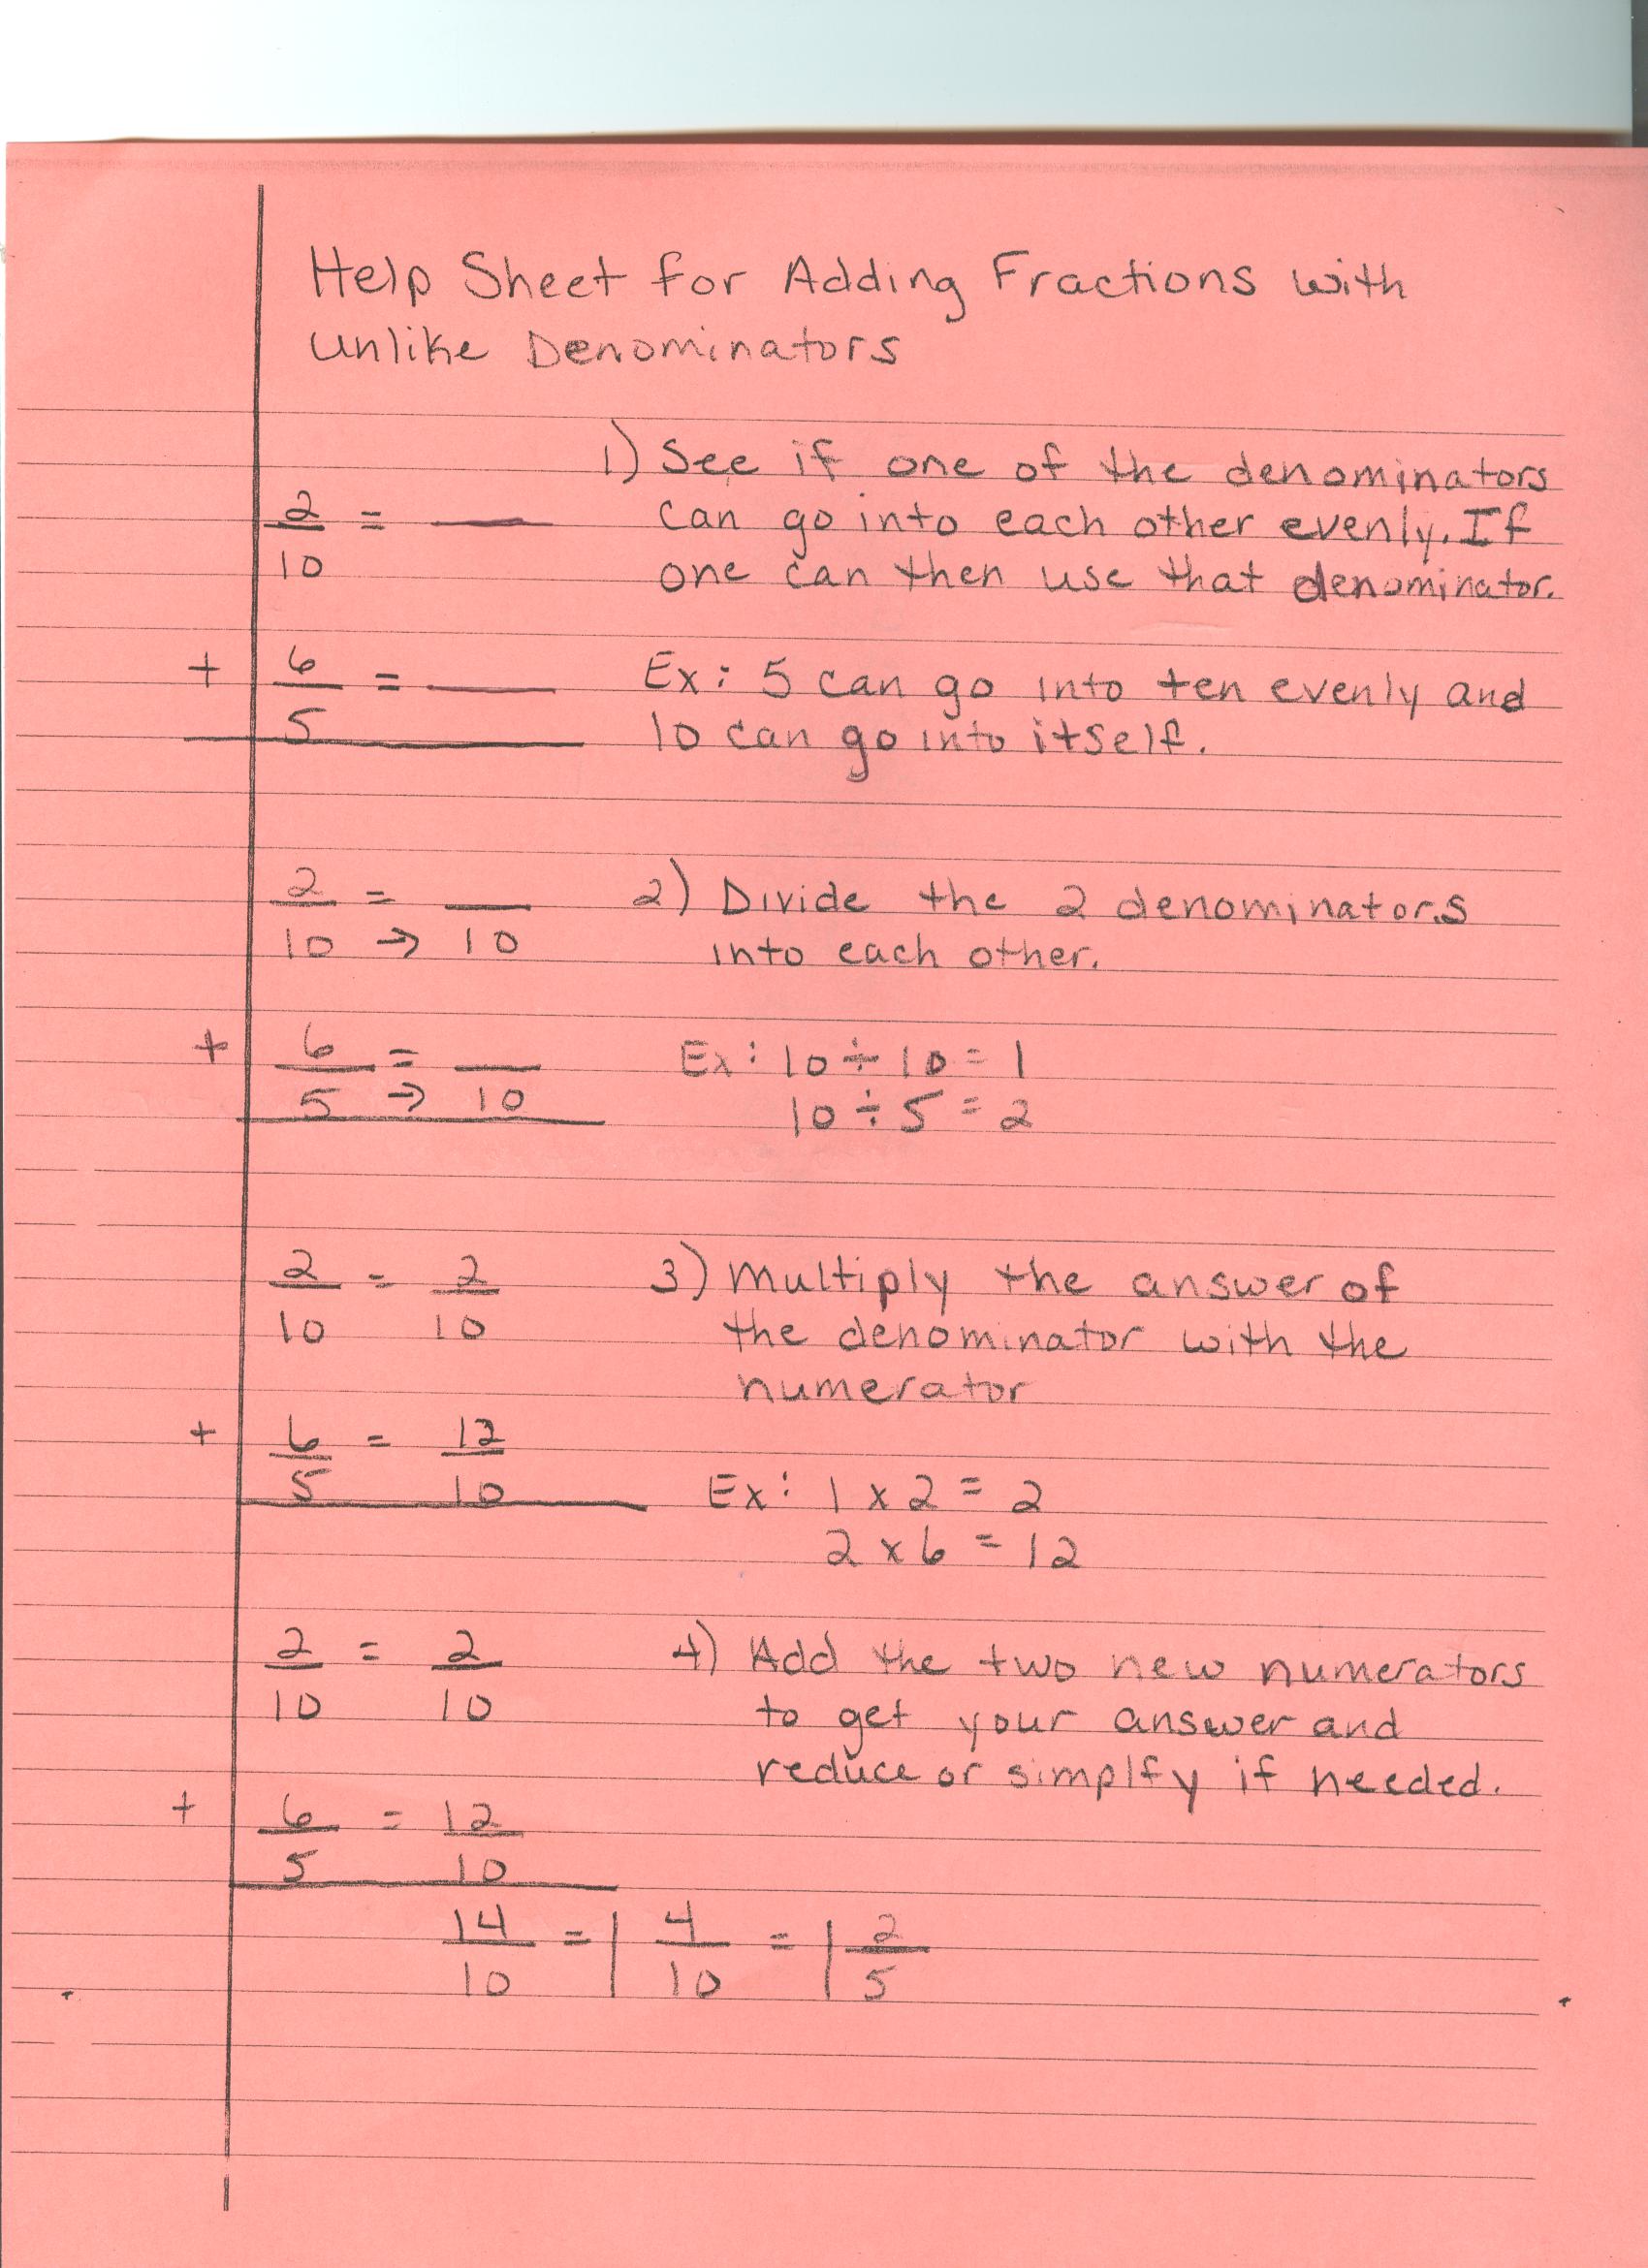 Help Sheet for Adding Fractions with
Unlike Denominators
1) See if one of the denominators
2/10 = ___ can go into each other evenly. If
one can then use that denominator.
+ 6/5 = ___ Ex: 5 can go into ten evenly and
10 can go into itself.
2/10 = ___ 2) Divide the 2 denominators
10 → 10 into each other.
+ 6/5 = ___ Ex: 10 ÷ 10 = 1
5 → 10 10 ÷ 5 = 2
2/10 = 2/10 3) Multiply the answer of
the denominator with the
numerator
+ 6/5 = 12/10
Ex: 1 x 2 = 2
2 x 6 = 12
2/10 = 2/10 4) Add the two new numerators
to get your answer and
reduce or simplfy if needed.
+ 6/5 = 12/10
14/10 = 1 4/10 = 1 2/5